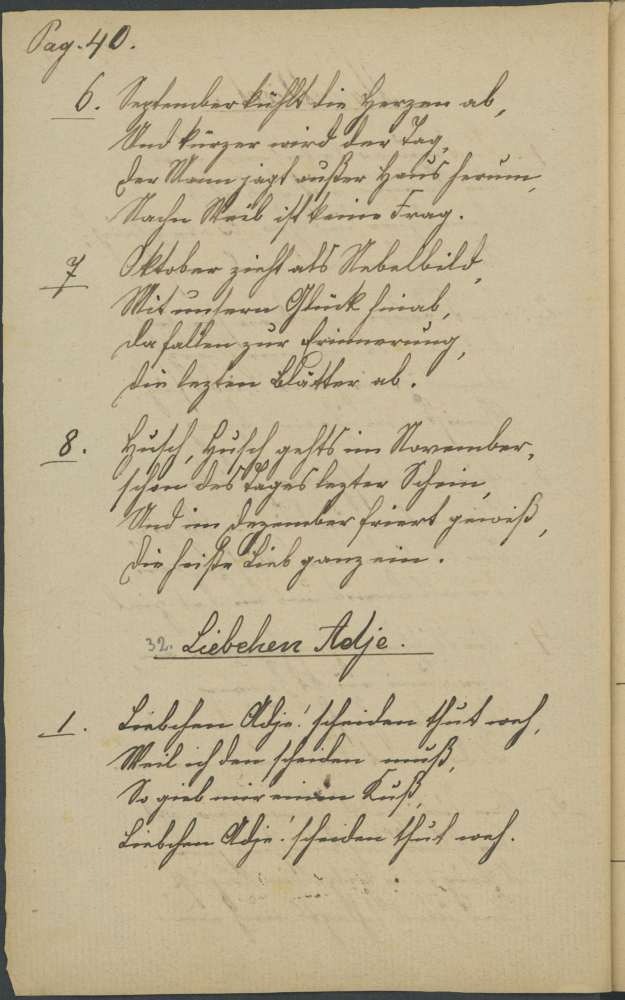 Pag. 40.
6. September kühlt die Herzen ab,
Und kürzer wird der Tag,
Der Mann jagt außer Haus herum,
Nachn Weib ist keine Frag.
7 Oktober zieht als Nebelbild,
Mit unsern Glück hinab,
Da fallen zur Erinnerung,
Die lezten Blätter ab.
8. Husch, Husch gehts im November,
schon des Tages lezter Schein,
Und im Dezember friert gewiß,
Die heiße Lieb ganz ein.
32. Liebchen Adje.
1. Liebchen Adje! scheiden thut weh,
Weil ich den scheiden muß,
So gieb mir einen Kuß,
Liebchen Adje! scheiden thut weh.